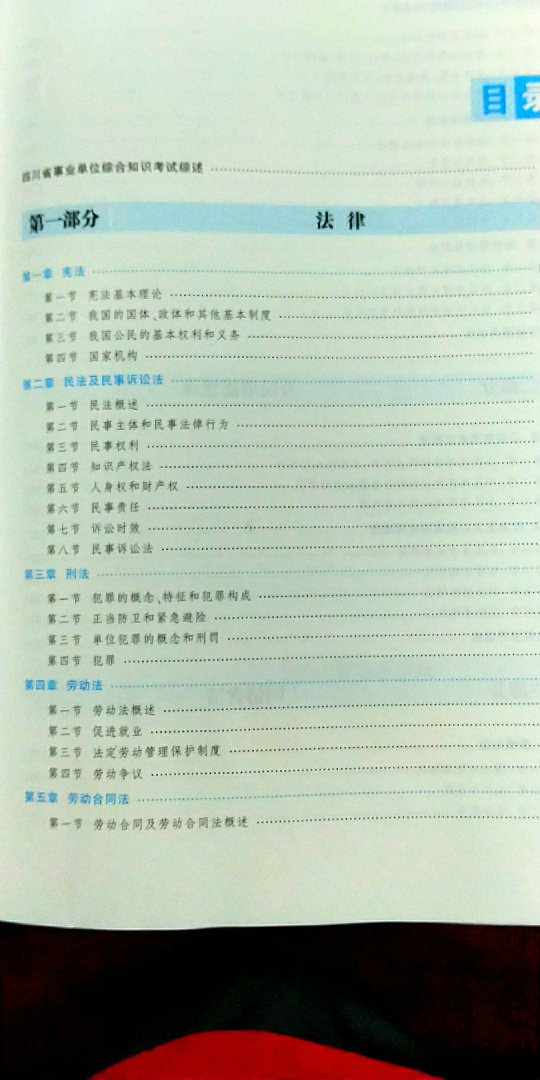 目录
四川省事业单位综合知识考试综述
第一部分 法律
第一章 宪法
第一节 宪法基本理论
第二节 我国的国体、政体和其他基本制度
第三节 我国公民的基本权利和义务
第四节 国家机构
第二章 民法及民事诉讼法
第一节 民法概述
第二节 民事主体和民事法律行为
第三节 民事权利
第四节 知识产权法
第五节 人身权和财产权
第六节 民事责任
第七节 诉讼时效
第八节 民事诉讼法
第三章 刑法
第一节 犯罪的概念、特征和犯罪构成
第二节 正当防卫和紧急避险
第三节 单位犯罪的概念和刑罚
第四节 犯罪
第四章 劳动法
第一节 劳动法概述
第二节 促进就业
第三节 法定劳动管理保护制度
第四节 劳动争议
第五章 劳动合同法
第一节 劳动合同及劳动合同法概述